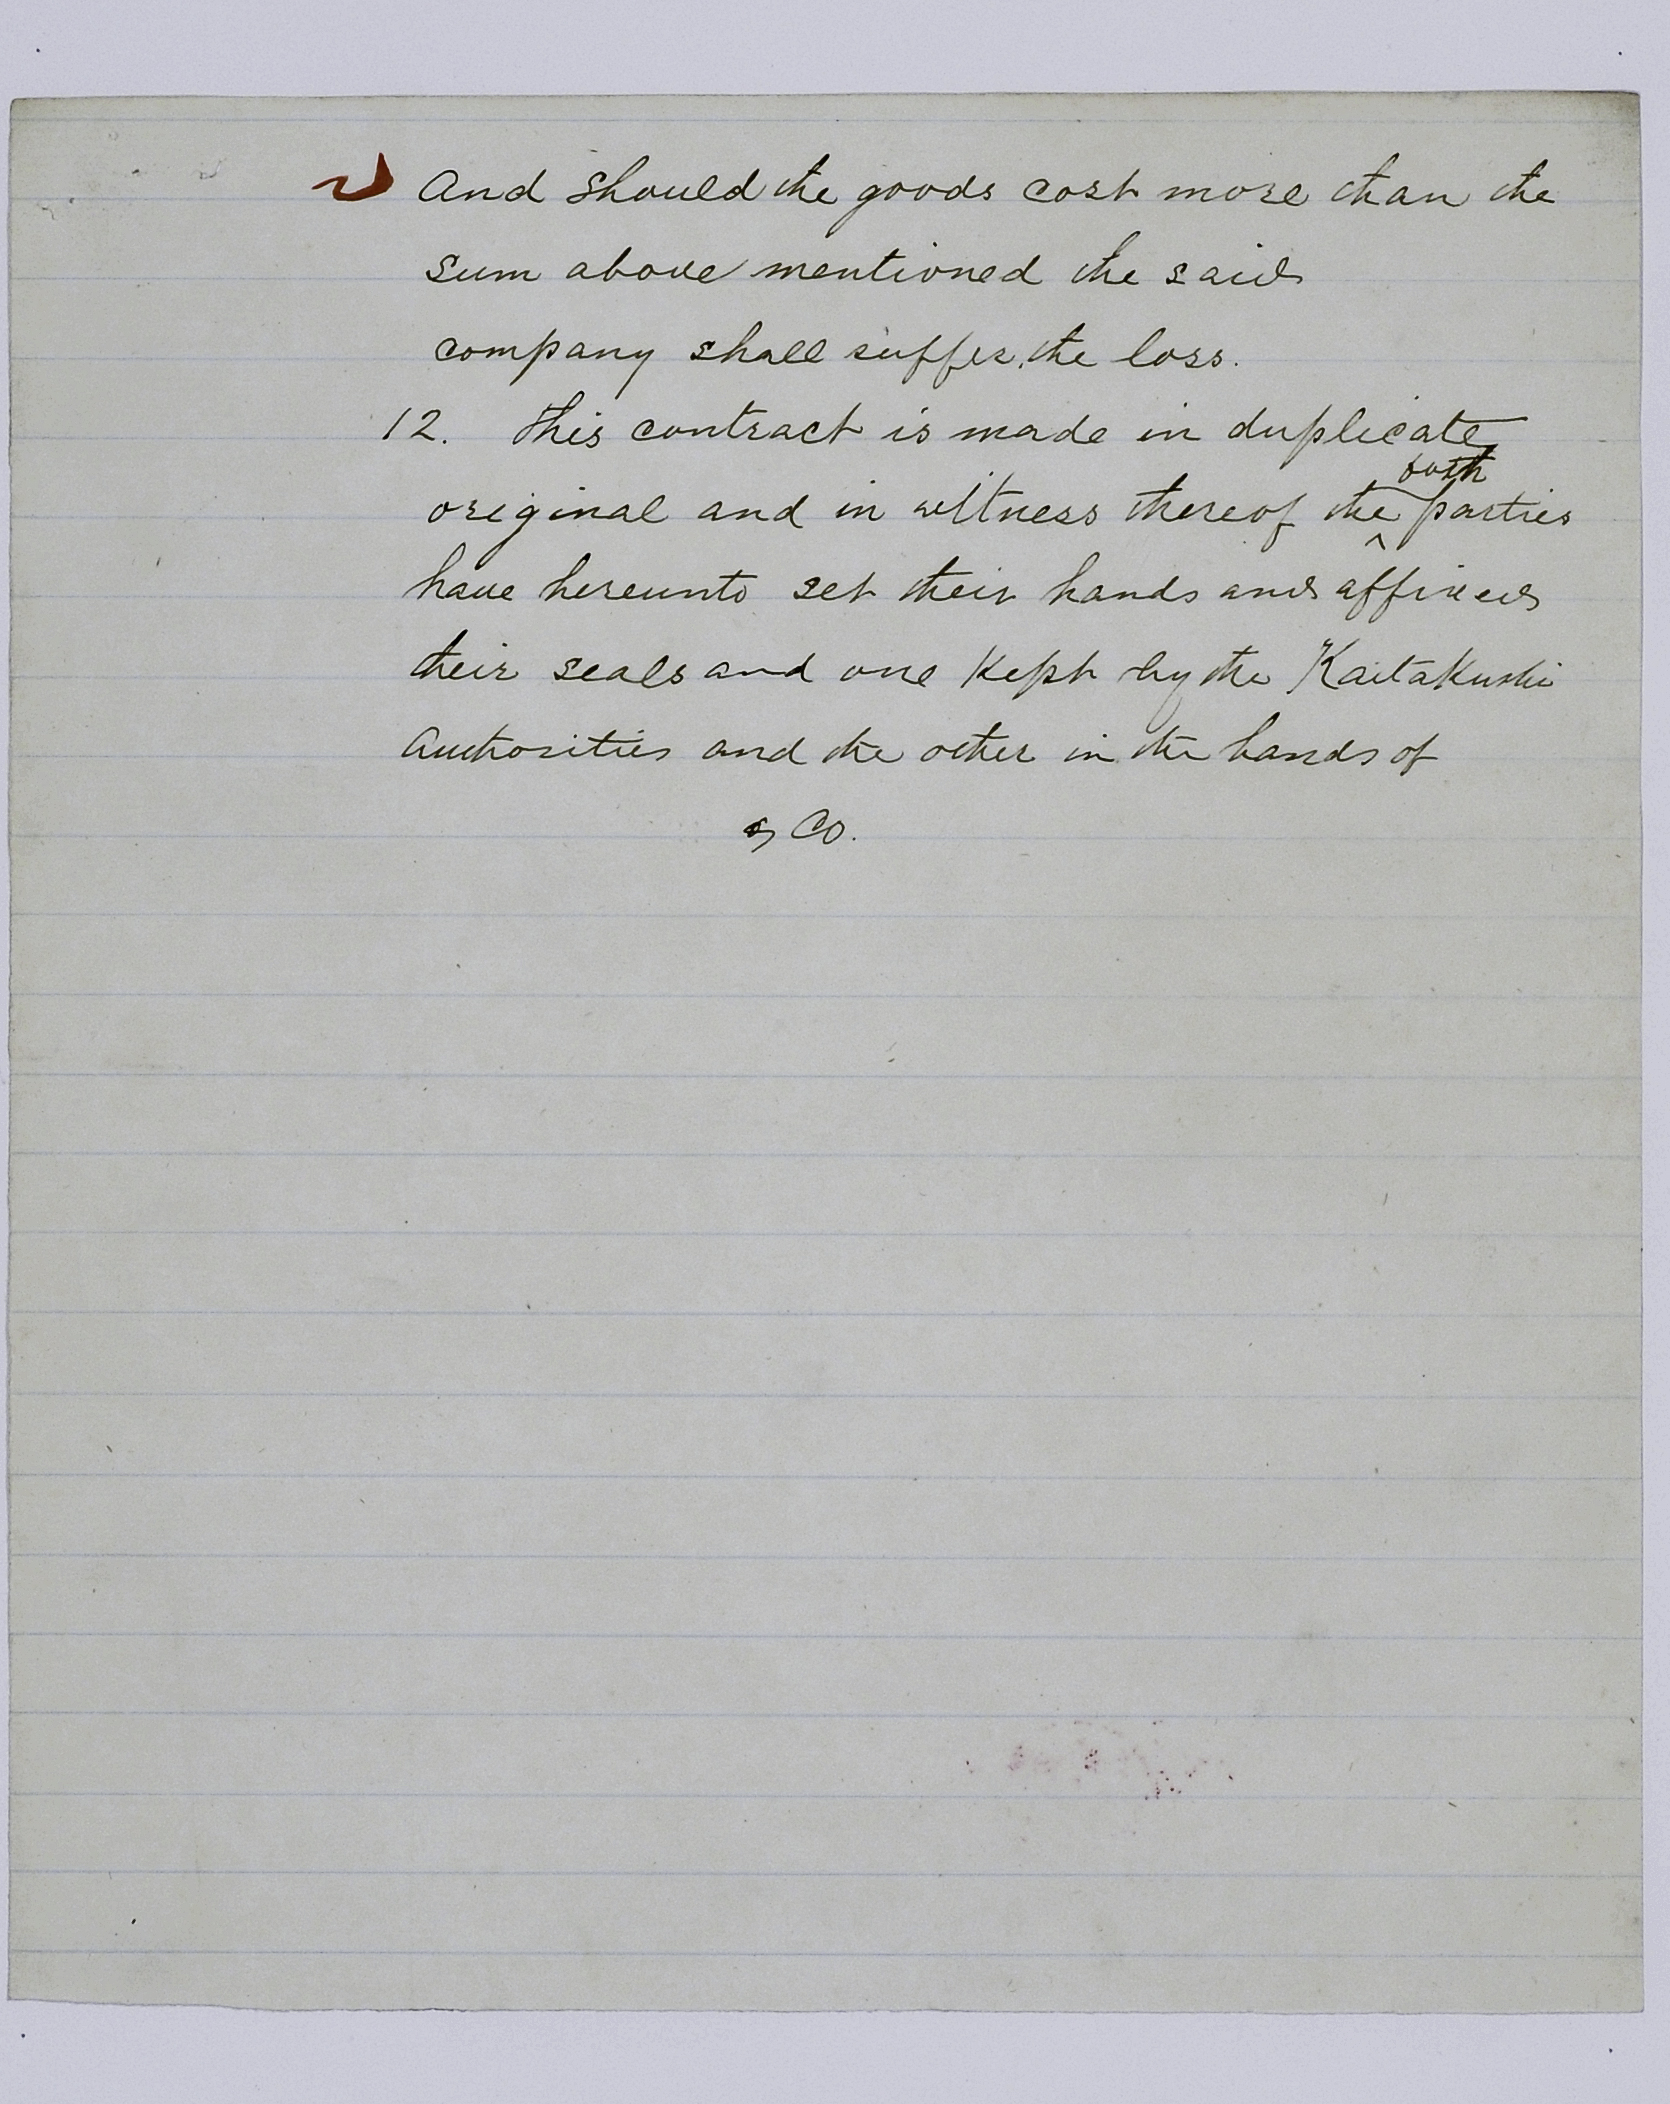 And should the goods cost more than the
sum above mentioned the said
company shall suffer the loss.
12. This contract is made in duplicate
both
original and in witness thereof the parties
have hereunto set their hands and affixed
their seals and one kept by the Kaitakushi
Authorities and the other in the hands of
& Co.